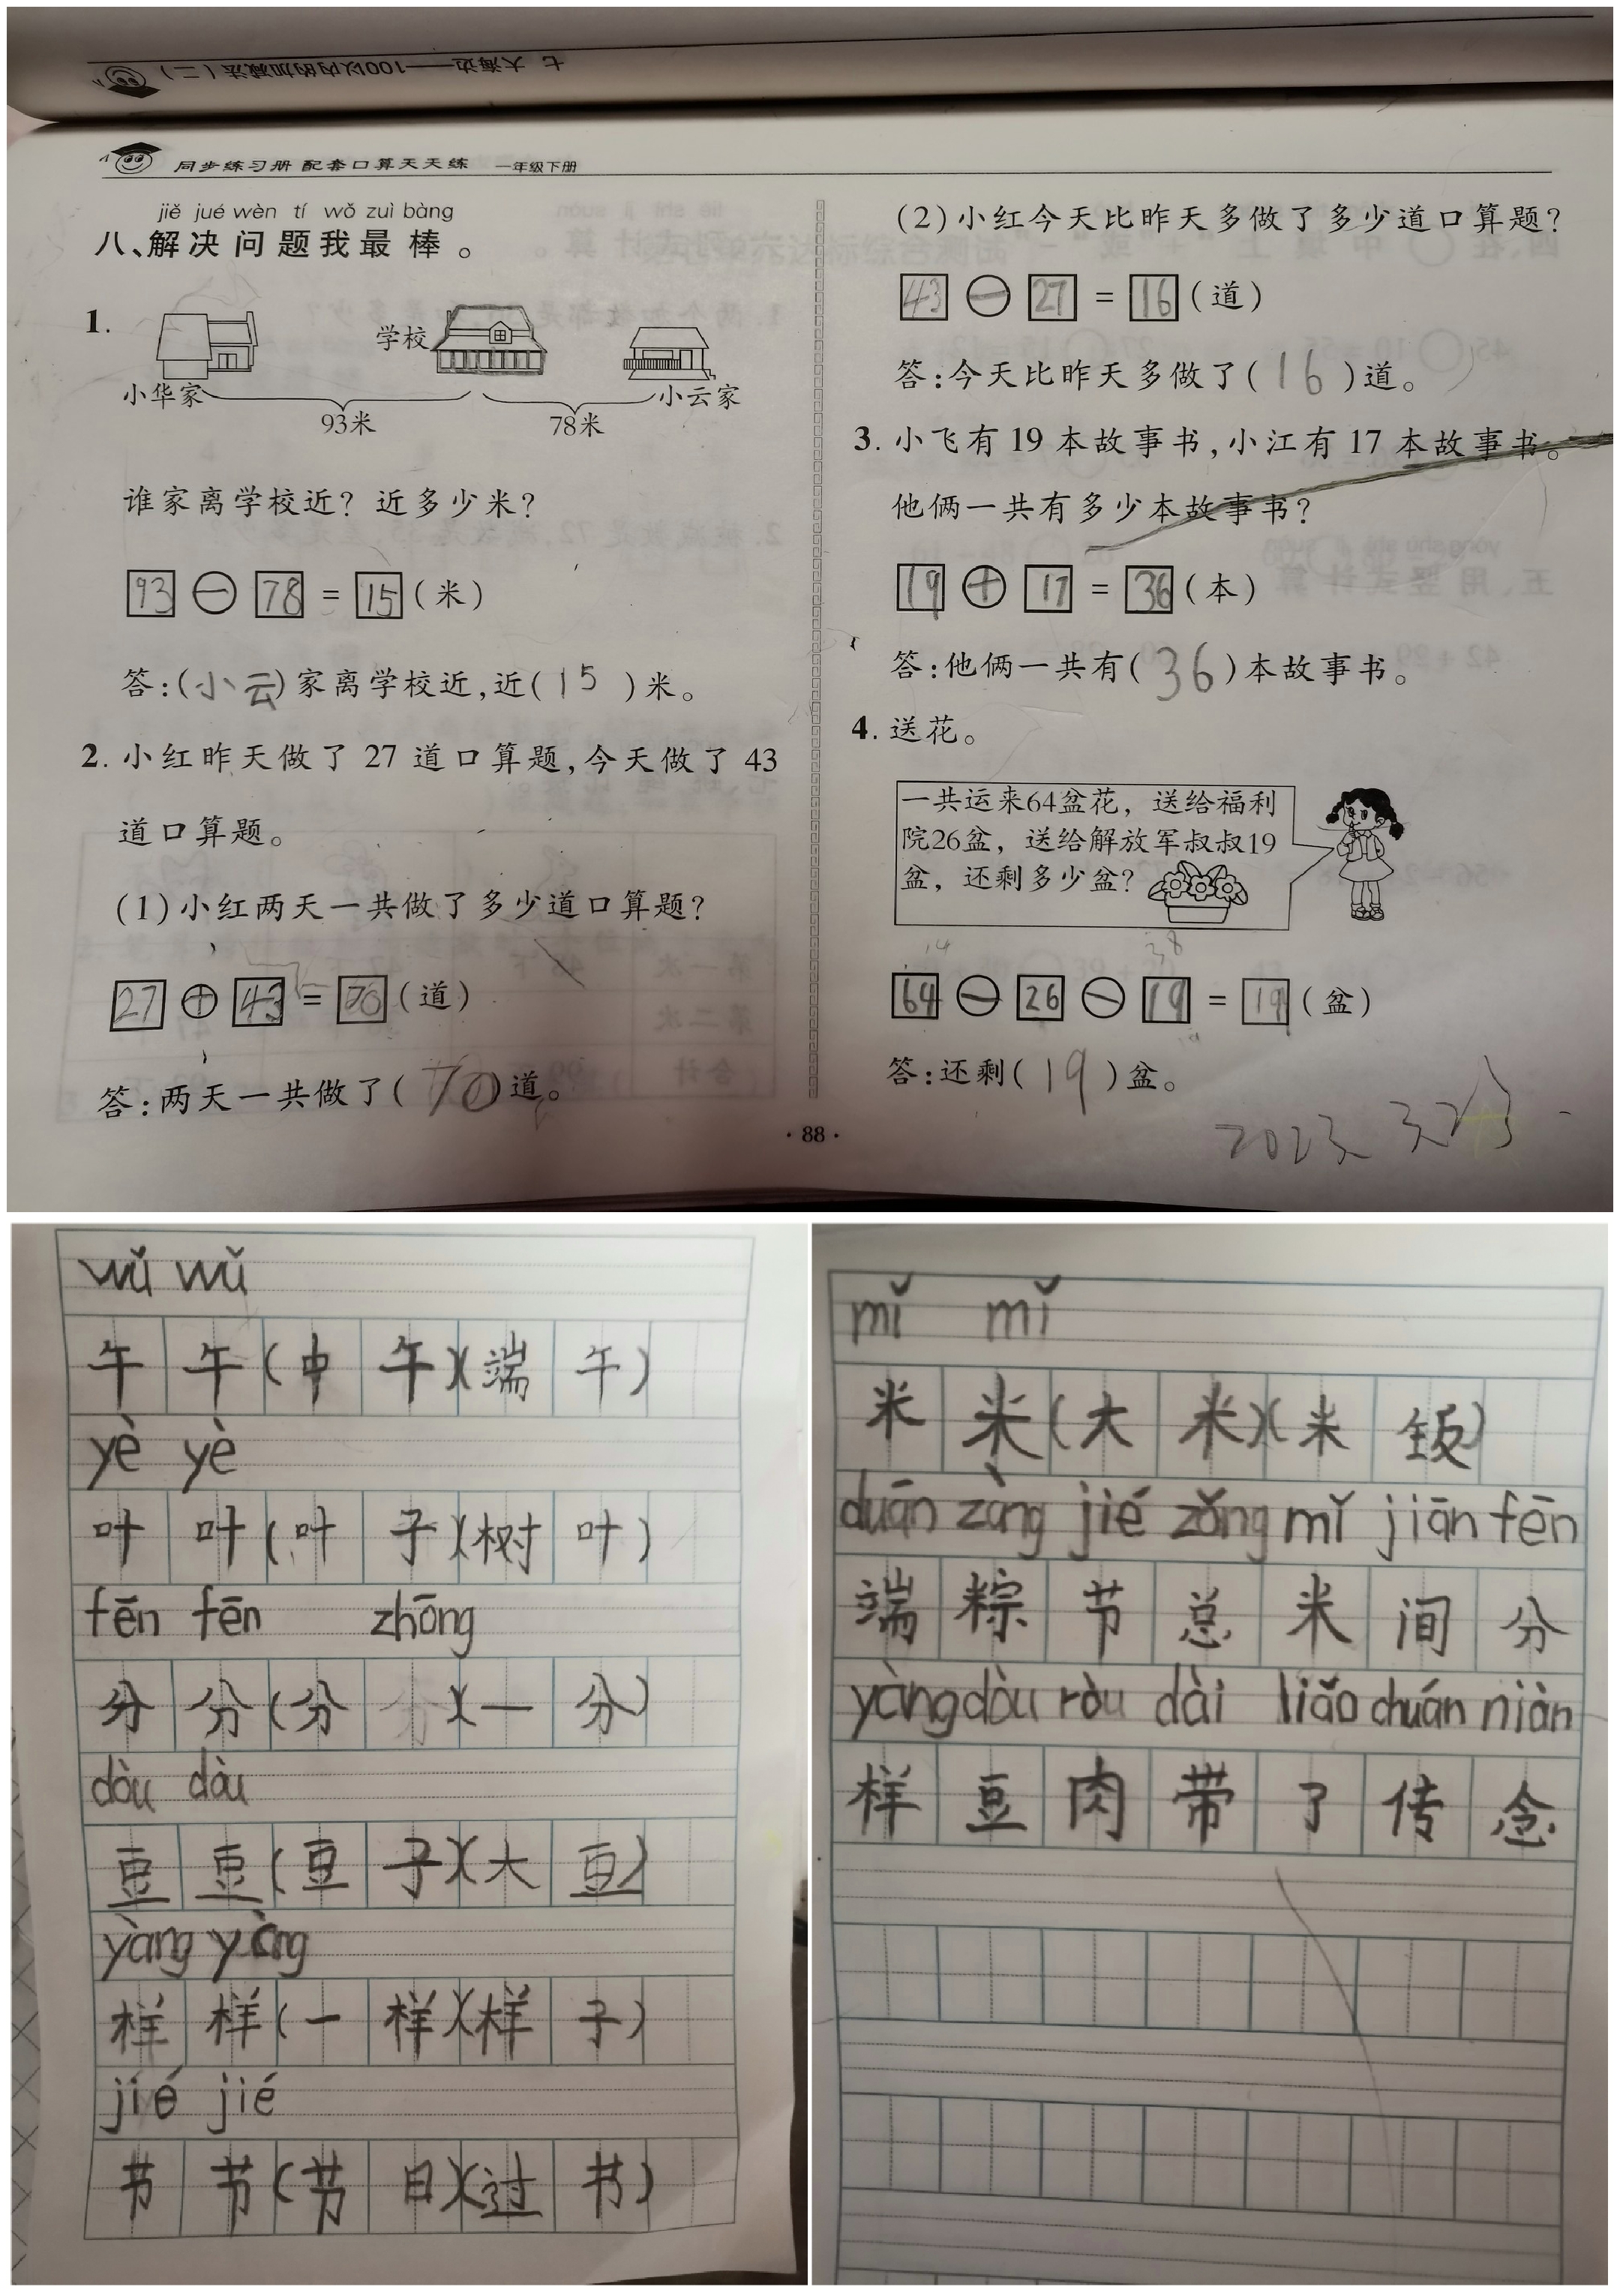 七 大海边——100以内的加减法(二)
同步练习册 配套口算天天练 一年级下册
jiě jué wèn tí wǒ zuì bàng
八、解决问题我最棒。
1.
学校
小华家
小云家
93米
78米
谁家离学校近?近多少米?
93 - 78 = 15 (米)
答:(小云)家离学校近,近(15)米。
2. 小红昨天做了 27 道口算题,今天做了 43
道口算题。
(1)小红两天一共做了多少道口算题?
27 + 43 = 70 (道)
答:两天一共做了(70)道。
(2)小红今天比昨天多做了多少道口算题?
43 - 27 = 16 (道)
答:今天比昨天多做了(16)道。
3. 小飞有 19 本故事书,小江有 17 本故事书。
他俩一共有多少本故事书?
19 + 17 = 36 (本)
答:他俩一共有(36)本故事书。
4. 送花。
一共运来64盆花,送给福利
院26盆,送给解放军叔叔19
盆,还剩多少盆?
14 38
64 - 26 - 19 = 19 (盆)
答:还剩(19)盆。
·88·
wǔ wǔ
午 午(中 午)(端 午)
yè yè
叶 叶(叶 子)(树 叶)
fēn fēn zhōng
分 分(分 )(一 分)
dòu dòu
豆 豆(豆 子)(大 豆)
yàng yàng
样 样(一 样)(样 子)
jié jié
节 节(节 日)(过 节)
mǐ mǐ
米 米(大 米)(米 饭)
duān zòng jié zǒng mǐ jiān fēn
端 粽 节 总 米 间 分
yàng dòu ròu dài liǎo chuán niàn
样 豆 肉 带 了 传 念